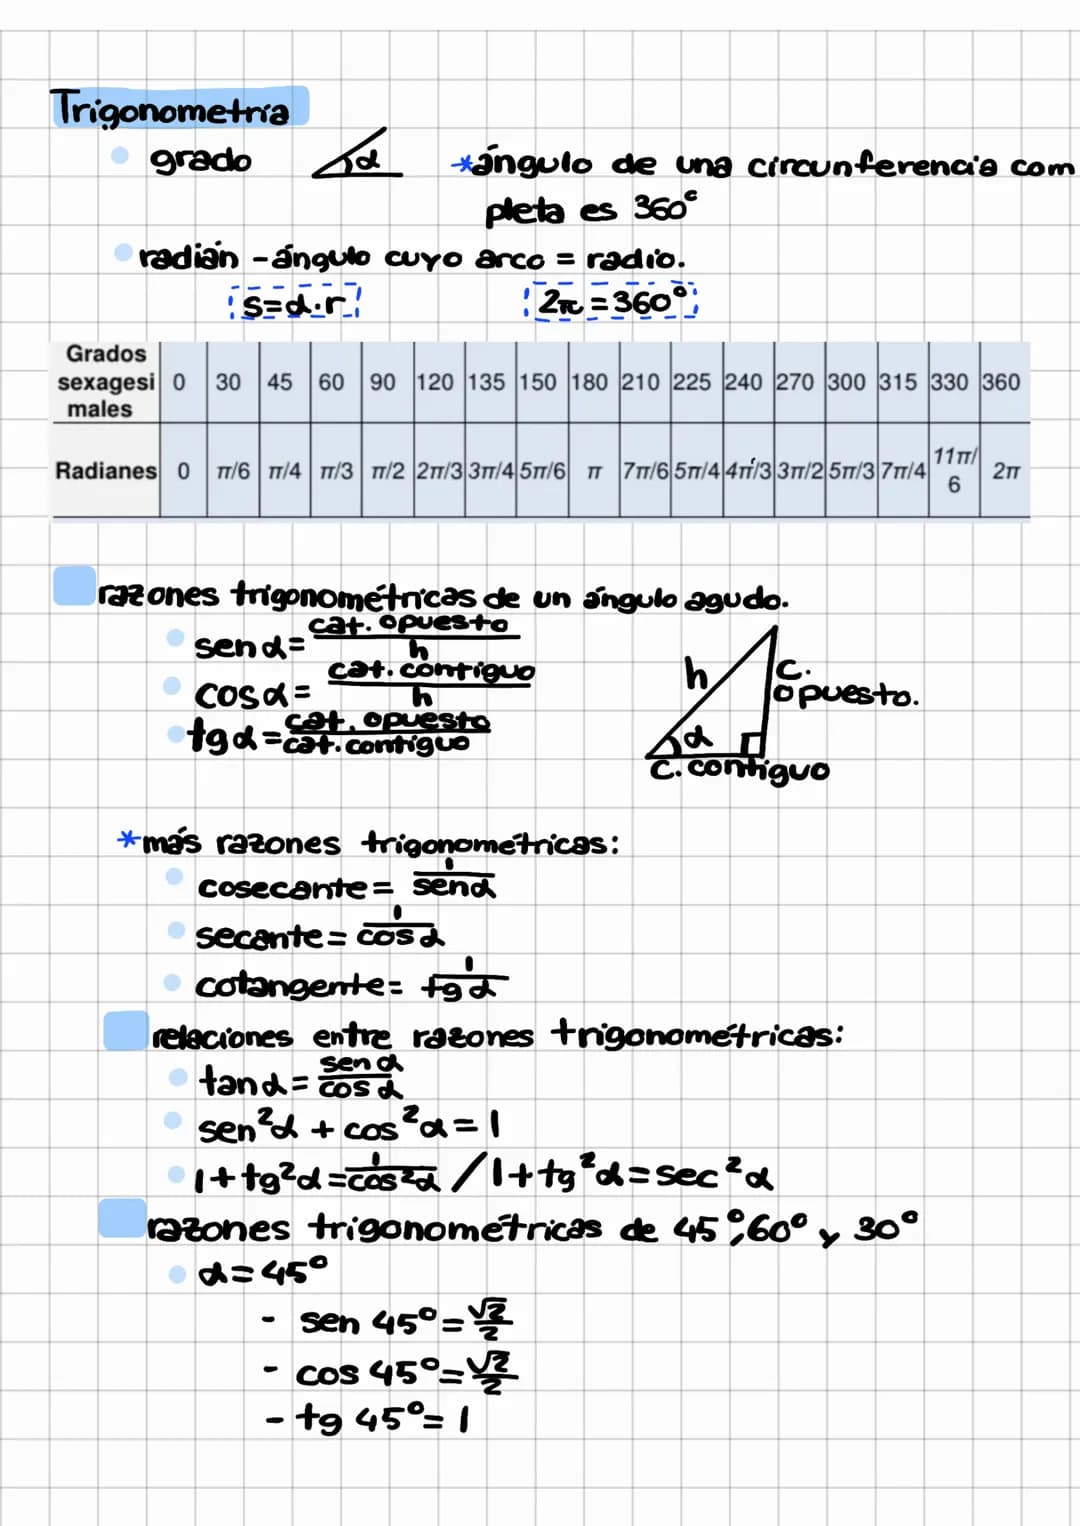 Trigonometría
grado α *ángulo de una circunferencia com
pleta es 360°
radián - ángulo cuyo arco = radio.
s=α·r 2π=360°
Grados sexagesimales 0 30 45 60 90 120 135 150 180 210 225 240 270 300 315 330 360
Radianes 0 π/6 π/4 π/3 π/2 2π/3 3π/4 5π/6 π 7π/6 5π/4 4π/3 3π/2 5π/3 7π/4 11π/6 2π
razones trigonométricas de un ángulo agudo.
sen α = cat. opuesto / h
cos α = cat. contiguo / h
tg α = cat. opuesto / cat. contiguo
h
c. opuesto.
α
c. contiguo
*más razones trigonométricas:
cosecante = 1/sen α
secante = 1/cos α
cotangente = 1/tg α
relaciones entre razones trigonométricas:
tan α = sen α/cos α
sen²α + cos²α = 1
1 + tg²α = 1/cos²α / 1 + tg²α = sec²α
razones trigonométricas de 45°, 60° y 30°
α = 45°
- sen 45° = √2/2
- cos 45° = √2/2
- tg 45° = 1